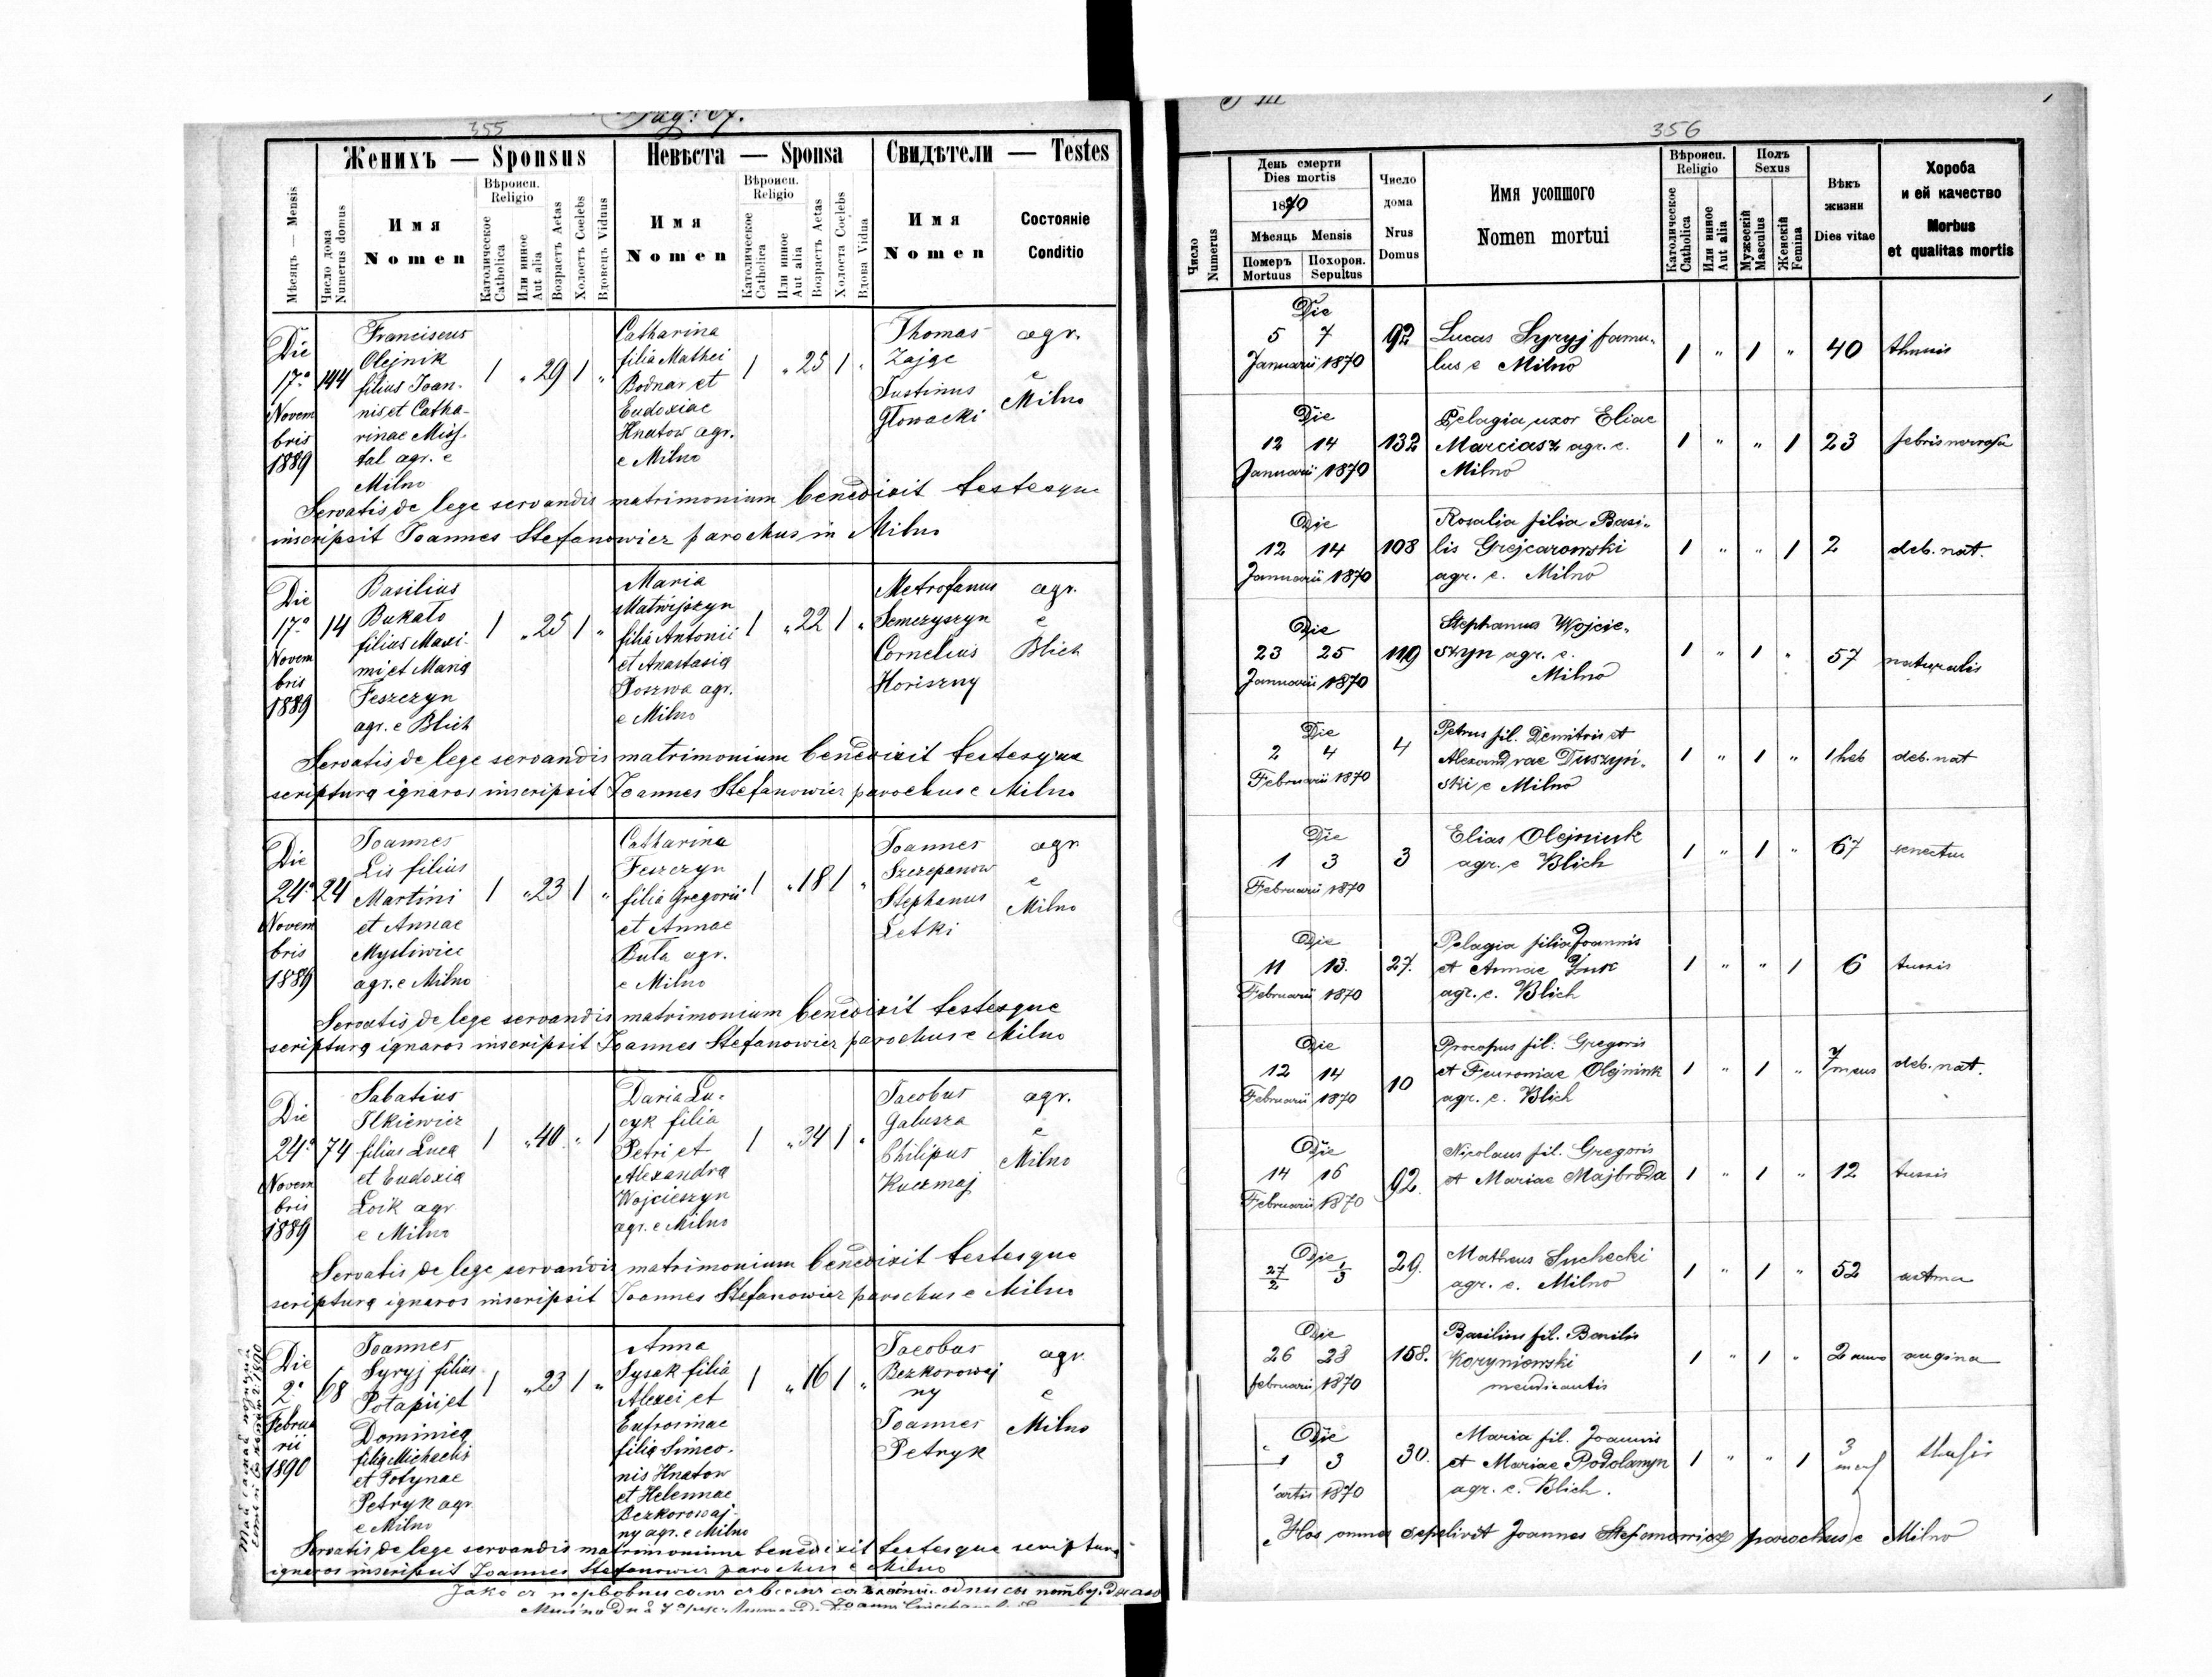 355
Pag: 67.
Женихъ — Sponsus
Невѣста — Sponsa
Свидѣтели — Testes
Мѣсяць — Mensis
Число дома
Numerus domus
Имя
Nomen
Вѣроисп.
Religio
Католическое
Catholica
Или инное
Aut alia
Возрастъ Aetas
Холостъ Coelebs
Вдовець Viduus
Имя
Nomen
Вѣроисп.
Religio
Католическое
Catholica
Или инное
Aut alia
Возрастъ Aetas
Холоста Coelebs
Вдова Vidua
Имя
Nomen
Состояніе
Conditio
Die
17ª
Novem
bris
1889
144
Franciscus
Olejnik
filius Joan-
nis et Catha-
rinae Mis-
tal agr. e
Milno
1 " 29 1 "
Catharina
filia Mathei
Bodnar et
Eudoxiae
Hnatow agr.
e Milno
1 " 25 1 "
Thomas
Zajge
Justinus
Głowacki
agr.
e
Milno
Servatis de lege servandis matrimonium benedixit testesque
inscripsit Joannes Stefanowicz parochus in Milno
Die
17ª
Novem
bris
1889
14
Basilius
Bukało
filius Maxi-
mi et Maria
Feszczyn
agr. e Blich
1 " 25 1 "
Maria
Matwijszyn
filia Antonii
et Anastasia
Poszwa agr.
e Milno
1 " 22 1 "
Metrofanus
Semczyszyn
Cornelius
Horiszny
agr.
e
Blich
Servatis de lege servandis matrimonium benedixit testesque
scriptura ignaros inscripsit Joannes Stefanowicz parochus e Milno
Die
24ª
Novem
bris
1889
24
Joannes
Lis filius
Martini
et Annae
Mysliwiec
agr. e Milno
1 " 23 1 "
Catharina
Feszczyn
filia Gregorii
et Annae
Buła agr.
e Milno
1 " 18 1 "
Joannes
Szczepanow
Stephanus
Letki
agr
e
Milno
Servatis de lege servandis matrimonium benedixit testesque
scriptura ignaros inscripsit Joannes Stefanowicz parochus e Milno
Die
24ª
Novem
bris
1889
74
Sabatius
Ilkiewicz
filius Luca
et Eudoxia
Loik agr
e Milno
1 " 40 " 1
Daria Lu-
cyk filia
Petri et
Alexandra
Wojcieszyn
agr. e Milno
1 " 34 1 "
Jacobus
Galusza
Philipus
Kuczmaj
agr.
e
Milno
Servatis de lege servandis matrimonium benedixit testesque
scriptura ignaros inscripsit Joannes Stefanowicz parochus e Milno
Die
2ª
Februa
rii
1890
68
Joannes
Syryj filius
Potapii et
Dominica
filia Michaelis
et Fotynae
Petryk agr
e Milno
1 " 23 1 "
Anna
Sysak filia
Alexei et
Eufrosinae
filia Simeo-
nis Hnatow
et Helennae
Bezkorowaj-
ny agr. e Milno
1 " 16 1 "
Jacobus
Bezkorowaj
ny
Joannes
Petryk
agr.
e
Milno
Servatis de lege servandis matrimonium benedixit testesque scriptura
ignaros inscripsit Joannes Stefanowicz parochus e Milno
356
Число
Numerus
День смерти
Dies mortis
1870
Мѣсяць Mensis
Померъ
Mortuus
Похорон.
Sepultus
Число
дома
Nrus
Domus
Имя усопшого
Nomen mortui
Вѣроисп.
Religio
Католическое
Catholica
Или инное
Aut alia
Полъ
Sexus
Мужескій
Masculus
Женскій
Femina
Вѣкъ
жизни
Dies vitae
Хороба
и ей качество
Morbus
et qualitas mortis
Die
5 7
Januarii 1870
92
Lucas Syryj famu„
lus e Milno
1 " 1 "
40
Die
12 14
Januarii 1870
132
Pelagia uxor Eliae
Marciasz agr. e.
Milno
1 " " 1
23
febris nervosa
Die
12 14
Januarii 1870
108
Rosalia filia Basi„
lis Grejcarowski
agr. e. Milno
1 " " 1
2
deb. nat.
Die
23 25
Januarii 1870
119
Stephanus Wojcie„
szyn agr. e.
Milno
1 " 1 "
57
naturalis
Die
2 4
Februarii 1870
4
Petrus fil. Demitris et
Alexandrae Duszyń„
ski e Milno
1 " 1 "
1 heb
deb. nat
Die
1 3
Februarii 1870
3
Elias Olejniuk
agr. e Blich
1 " 1 "
67
senectus
Die
11 13.
Februarii 1870
27.
Pelagia filia Joannis
et Annae Żuk
agr. e. Blich
1 " " 1
6
tussis
Die
12 14
Februarii 1870
10
Procopus fil: Gregoris
et Feuroniae Olejniuk
agr. e. Blich
1 " 1 "
7
mens
deb. nat.
Die
14 16
Februarii 1870
92.
Nicolaus fil. Gregoris
et Mariae Majbroda
1 " 1 "
12
tussis
Die
27/2 1/3
29.
Matheus Suchecki
agr. e. Milno
1 " 1 "
52
astma
Die
26 28
februarii 1870
158.
Basilius fil. Basilis
Koryniowski
mendicantis
1 " 1 "
2 anno
angina
Die
1 3
artis 1870
30.
Maria fil. Joannis
et Mariae Podolanyn
agr. e. Blich.
1 " " 1
3
mens
Hos omnes sepelivit Joannes Stefanowicz parochus e Milno